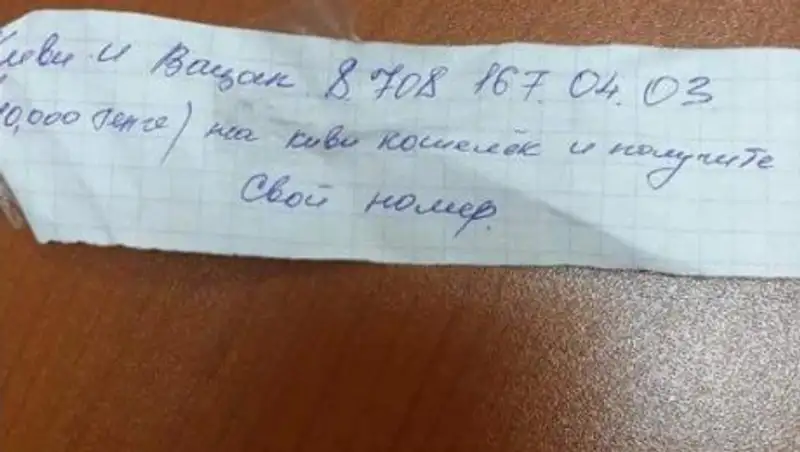 Киви и Вацап 8.708 167.04.03
10,000 тенге) на киви кошелёк и получите
Свой номер.